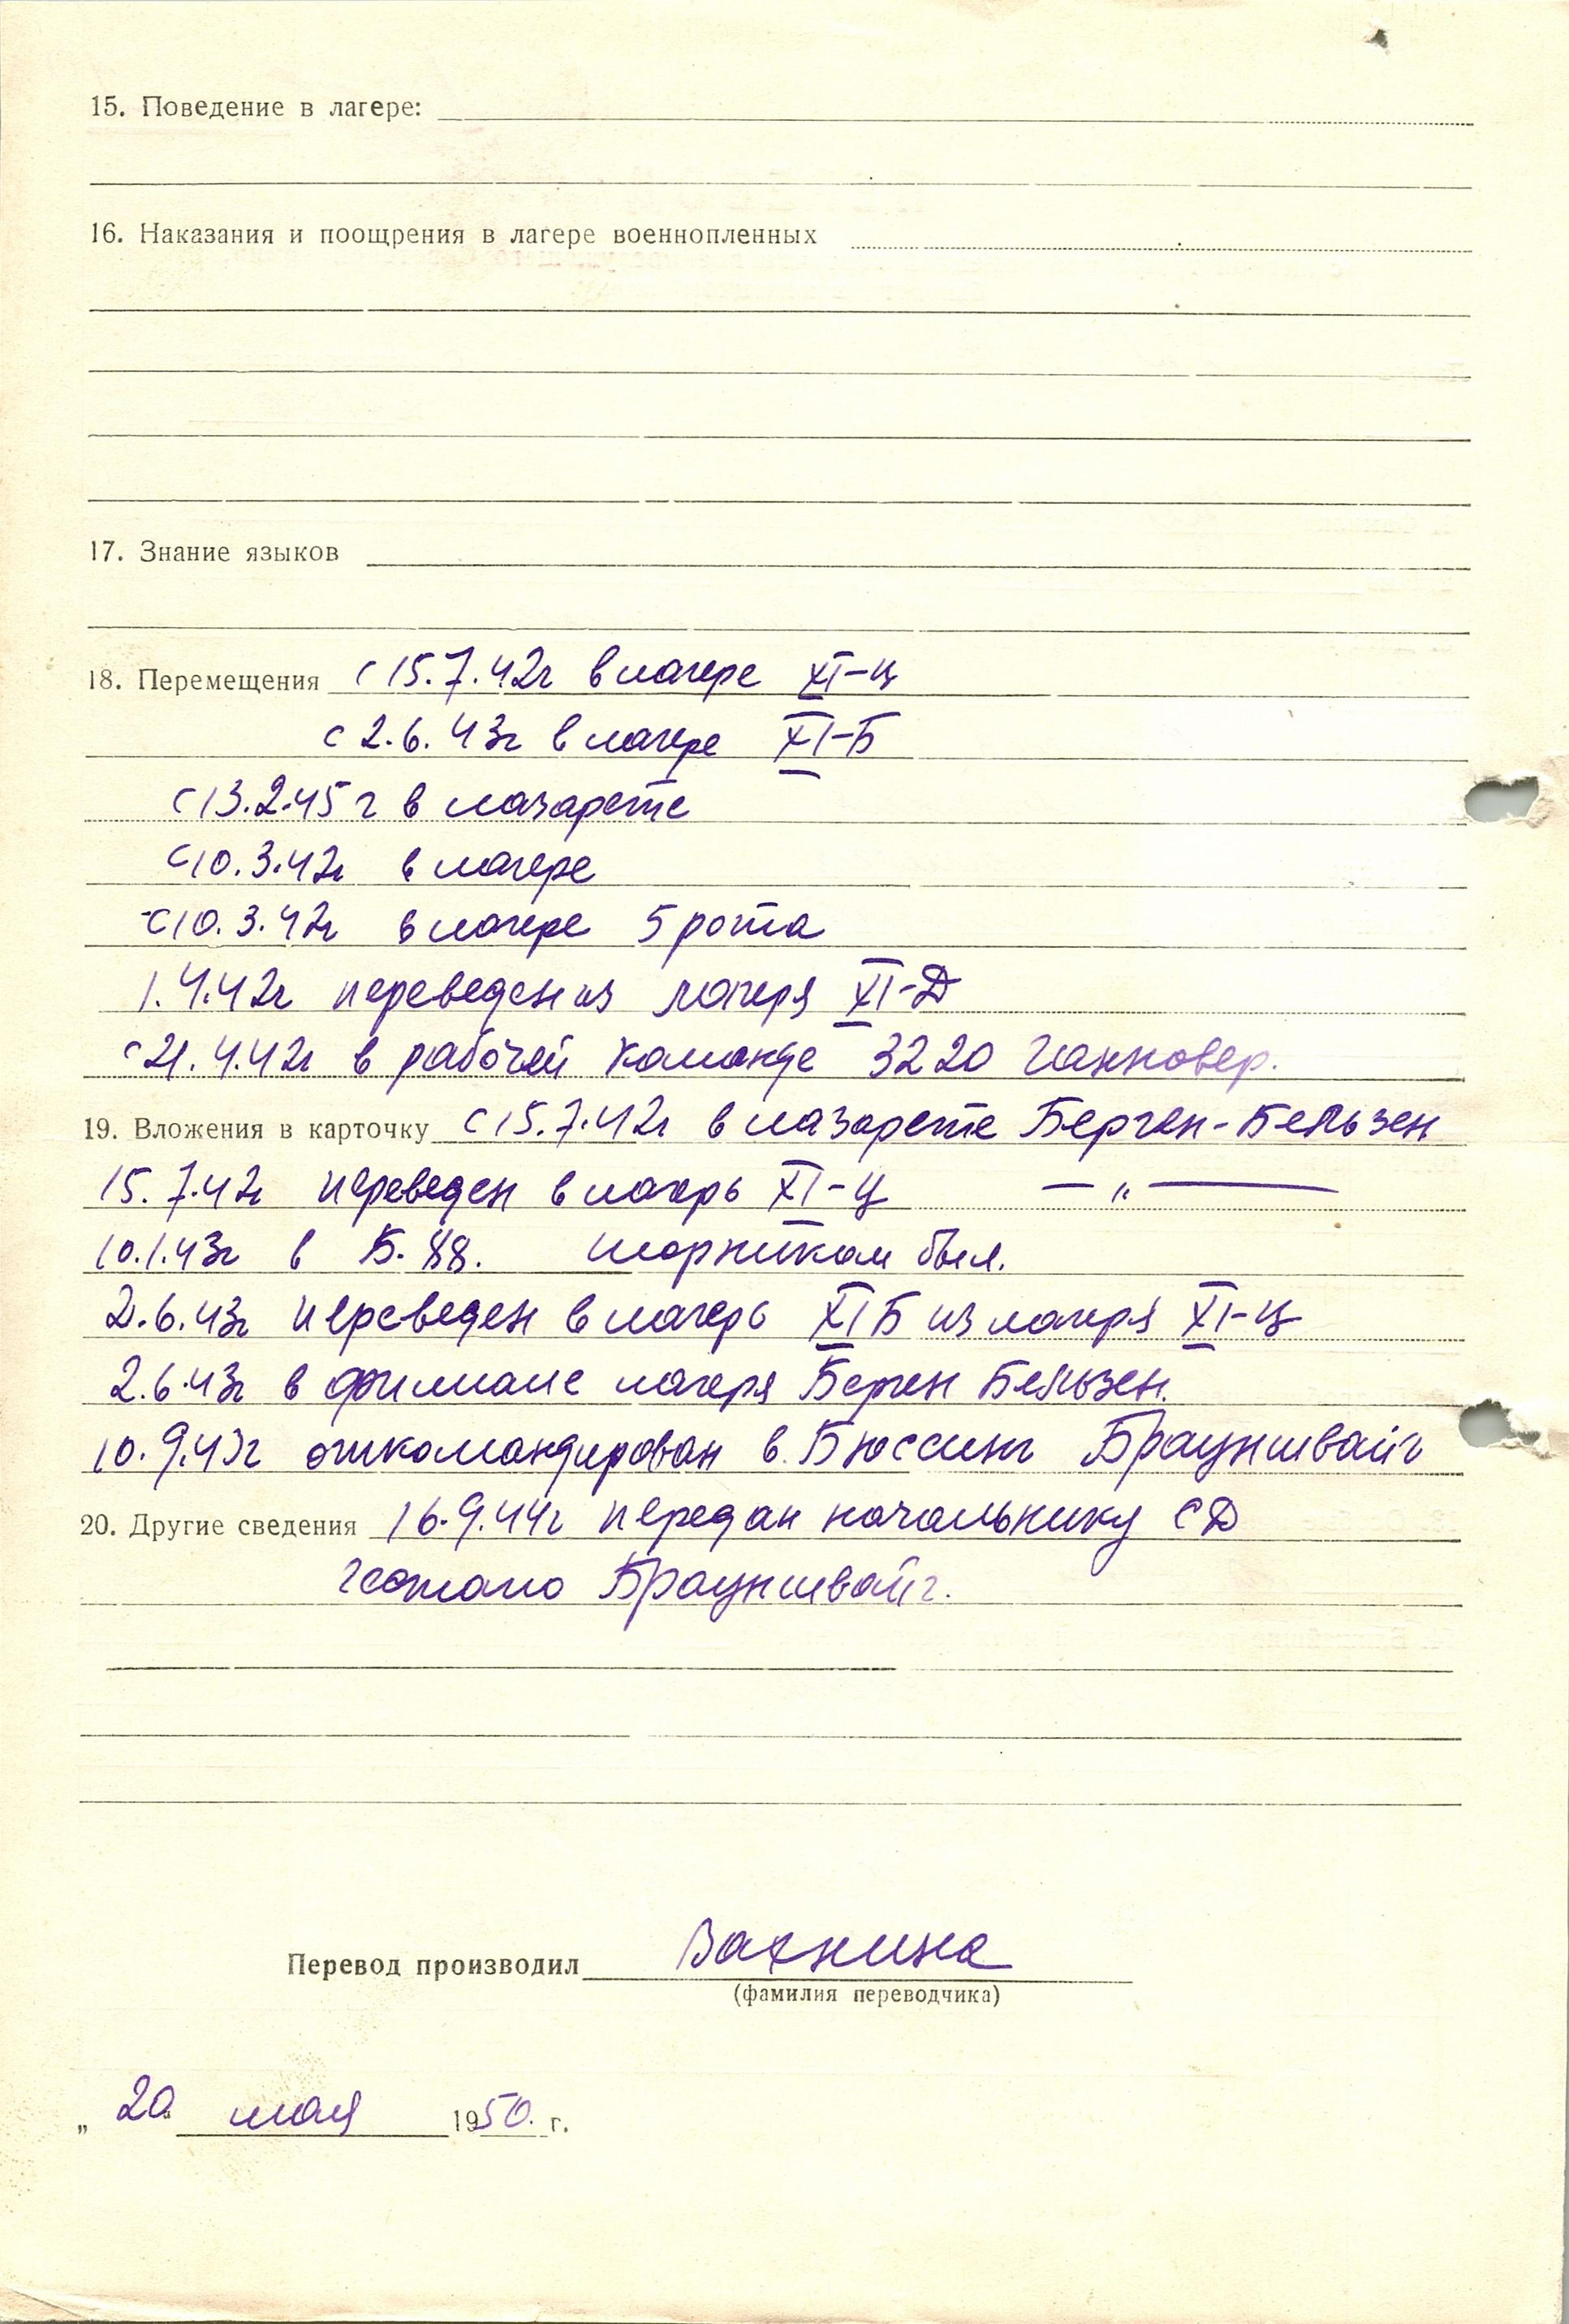 15. Поведение в лагере:
16. Наказания и поощрения в лагере военнопленных
17. Знание языков
18. Перемещения с 15.7.42г в лагере XI-Ц
с 2.6.43г в лагере XI-Б
с 13.2.45 г в лазарете
с 10.3.42г в лагере
с 10.3.42г в лагере 5 рота
1.4.42г переведен из лагеря XI-Д
с 21.4.42г в рабочей команде 3220 Ганновер.
19. Вложения в карточку с 15.7.42г в лазарете Берген-Бельзен
15.7.42г переведен в лагерь XI-Ц — „ —
10.1.43г в Б. 88. шорником был.
2.6.43г переведен в лагерь XI Б из лагеря XI-Ц
2.6.43г в филиале лагеря Берген Бельзен.
10.9.43г откомандирован в Бюссинг Брауншвайг
20. Другие сведения 16.9.44г передан начальнику СД
гестапо Брауншвайг.
Перевод производил Вахнина
(фамилия переводчика)
„ 20 мая 1950. г.